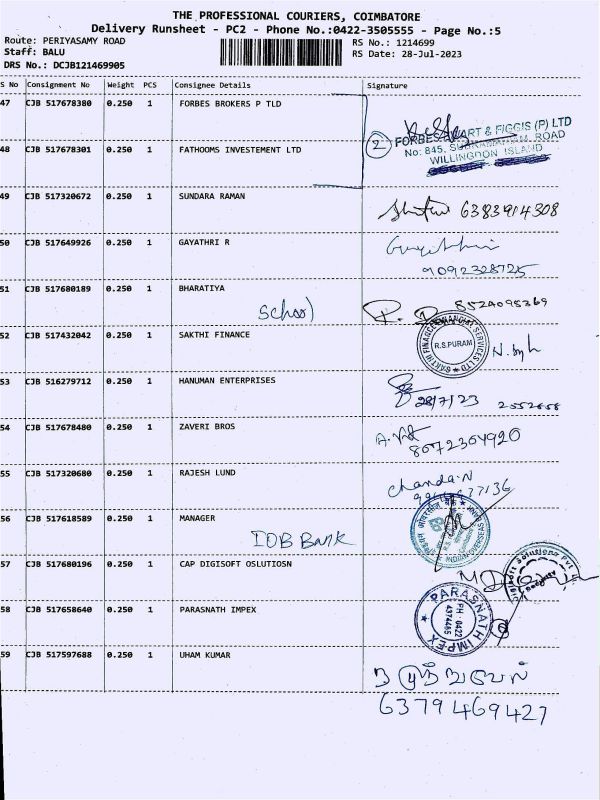 THE PROFESSIONAL COURIERS, COIMBATORE
Delivery Runsheet - PC2 - Phone No.:0422-3505555 - Page No.:5
Route: PERIYASAMY ROAD
RS No.: 1214699
Staff: BALU
RS Date: 28-Jul-2023
DRS No.: DCJB121469905
S No Consignment No Weight PCS Consignee Details Signature
47 CJB 517678380 0.250 1 FORBES BROKERS P TLD
2 FORBES EWART & FIGGIS (P) LTD
No: 845, SUBRAMANIAM ROAD
WILLINGDON ISLAND
48 CJB 517678301 0.250 1 FATHOOMS INVESTEMENT LTD
49 CJB 517320672 0.250 1 SUNDARA RAMAN
6383914308
50 CJB 517649926 0.250 1 GAYATHRI R
9092328725
51 CJB 517680189 0.250 1 BHARATIYA
School
8524095269
52 CJB 517432042 0.250 1 SAKTHI FINANCE
SAKTHI FINANCE FINANCIAL SERVICES LTD
R.S.PURAM
53 CJB 516279712 0.250 1 HANUMAN ENTERPRISES
28/7/23
54 CJB 517678480 0.250 1 ZAVERI BROS
55 CJB 517320680 0.250 1 RAJESH LUND
Chanda.N
56 CJB 517618589 0.250 1 MANAGER
IOB Bank
57 CJB 517680196 0.250 1 CAP DIGISOFT OSLUTIOSN
58 CJB 517658640 0.250 1 PARASNATH IMPEX
PARASNATH IMPEX
PH : 0422
4374465
59 CJB 517597688 0.250 1 UHAM KUMAR
6379469427